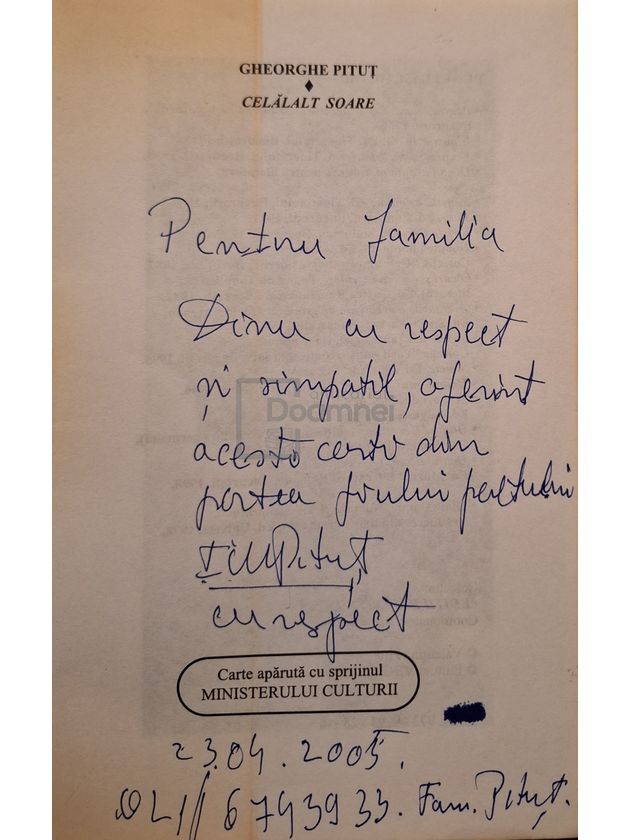 GHEORGHE PITUȚ
♦
CELĂLALT SOARE
Pentru familia
Dinu cu respect
și simpatie, oferim
această carte din
partea fiului poetului
Pituț
cu respect
Carte apărută cu sprijinul
MINISTERULUI CULTURII
23.04.2005.
021// 6743933. Fam. Pituț.